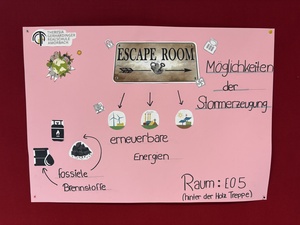 THERESIA
GERHARDINGER
REALSCHULE
AMORBACH
ESCAPE ROOM
Möglichkeiten
der
Stormerzeugung
erneuerbare
Energien
fossiele
Brennstoffe
Raum: E05
(hinter der Holz Treppe)